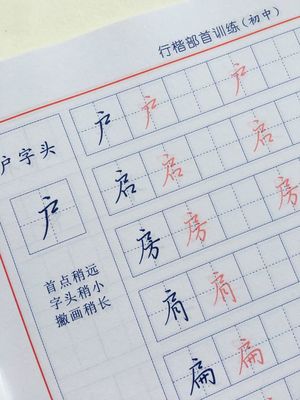 行楷部首训练（初中）
户字头
户
首点稍远
字头稍小
撇画稍长
户 户 户
启 启 启
房 房 房
肩 肩
扁 扁